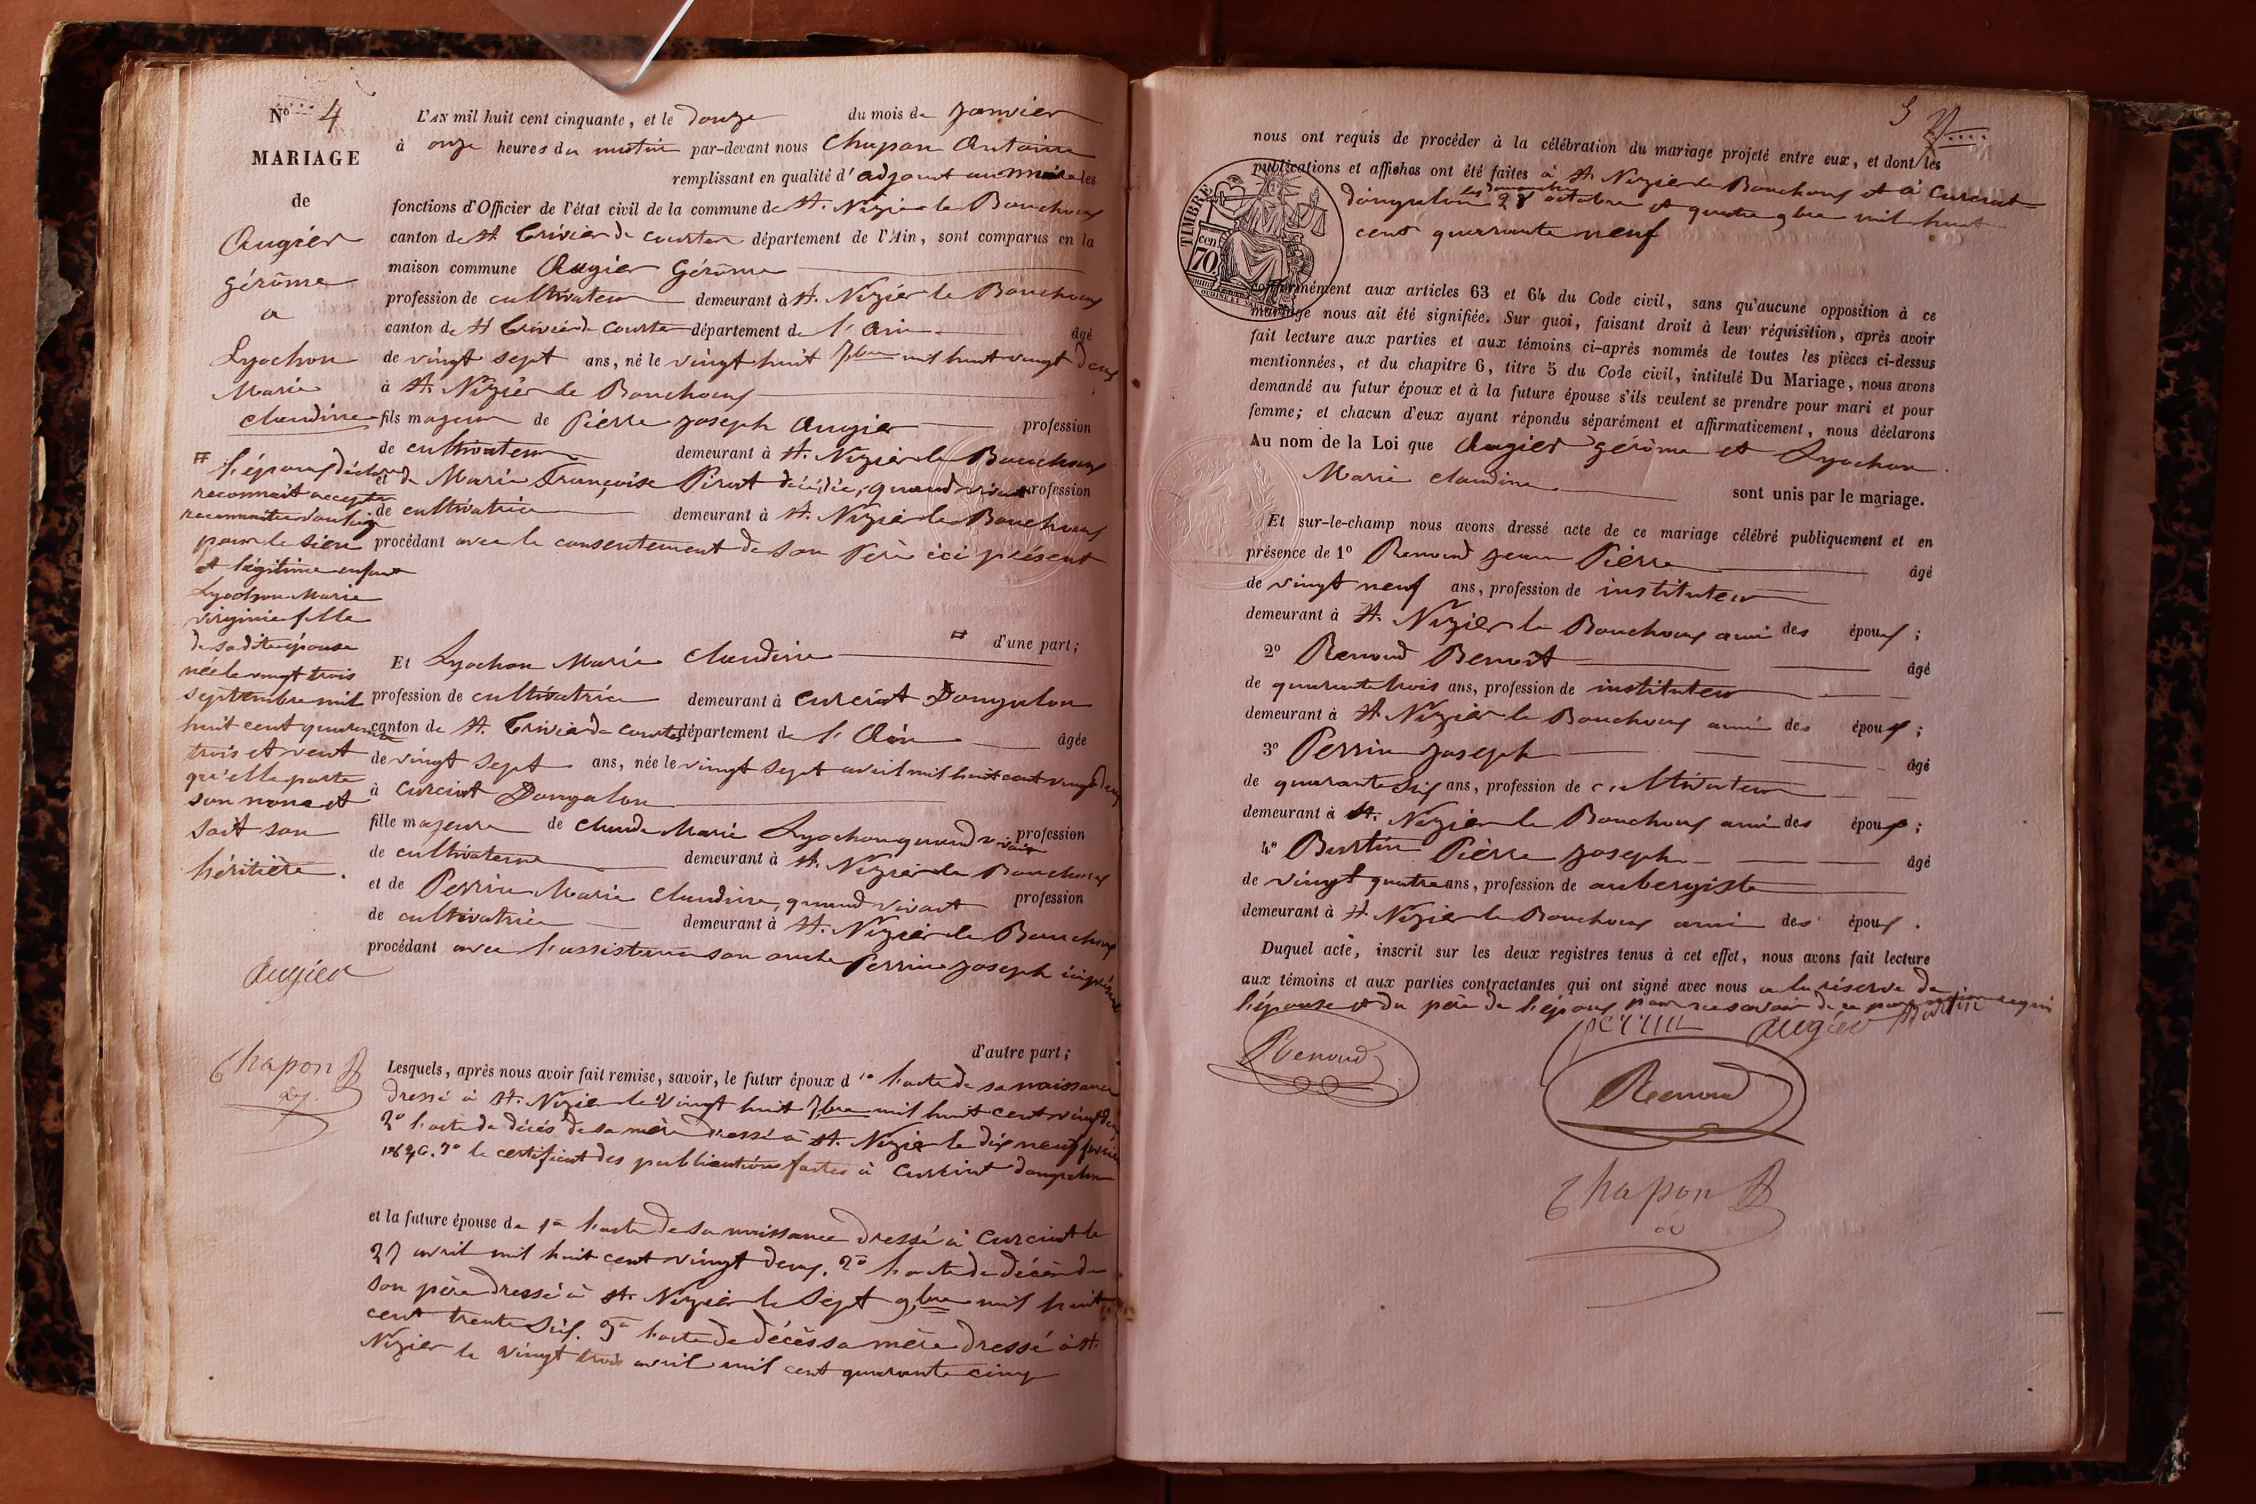 N° 4
MARIAGE
de
Augier
gérôme
a
Lyochon
Marie
claudine
⌗ l'époux déclare
reconnait accepte
reconnaitre
pour le sien
et légitime enfant
Lyochon Marie
virginie fille
de sadite épouse
née le vingt trois
septembre mil
huit cent quarente
trois et veut
qu'elle porte
son nom et
soit son
héritière.
Augier
Chapon A
adj.
L'AN mil huit cent cinquante, et le douze du mois de janvier
à onze heures du matin par-devant nous Chapon Antoine
remplissant en qualité d'adjoint au maire les
fonctions d'Officier de l'état civil de la commune de St. Nizier le Bouchoux
canton de St Trivier de courtes département de l'Ain, sont comparus en la
maison commune Augier Gérôme
profession de cultivateur demeurant à St. Nizier le Bouchoux
canton de St Trivier de Courtes département de l'Ain âgé
de vingt sept ans, né le vingt huit 7bre mil huit vingt deux
à St. Nizier le Bouchoux
fils majeur de Pierre joseph Augier profession
de cultivateur demeurant à St. Nizier le Bouchoux
et de Marie Françoise Pirat décédée, quand vivait profession
de cultivatrice demeurant à St. Nizier le Bouchoux
procédant avec le consentement de son Père ici présent
⌗ d'une part;
Et Lyochon Marie claudine
profession de cultivatrice demeurant à curciat Dongalon
canton de St. Trivier de courtes département de l'Ain âgée
de vingt sept ans, née le vingt sept avril mil huit cent vingt deux
à curciat Dongalon
fille majeure de claude Marie Lyochon quand vivait profession
de cultivateur demeurant à St. Nizier le Bouchoux
et de Perrin Marie claudine, quand vivait profession
de cultivatrice demeurant à St. Nizier le Bouchoux
procédant avec l'assistance son oncle Perrin joseph ici présent
d'autre part;
Lesquels, après nous avoir fait remise, savoir, le futur époux d 1° l'acte de sa naissance
dressé à St. Nizier le vingt huit 7bre mil huit cent vingt deux
2° l'acte de décès de sa mère dressé à St. Nizier le dix neuf
3° le certificat des publications faites à curciat dongalon
et la future épouse de 1° l'acte de sa naissance dressé à curciat le
27 avril mil huit cent vingt deux. 2° l'acte de décès de
son père dressé à St Nizier le Sept 9bre mil huit
cent trente six. 3° l'acte de décès sa mère dressé à St.
Nizier le vingt trois avril mil cent quarante cinq
3
nous ont requis de procéder à la célébration du mariage projeté entre eux, et dont les
publications et affiches ont été faites à St. Nizier le Bouchoux et à Curciat
dongalon les dimanches 28 octobre et quatre 9bre mil huit
cent quarante neuf
TIMBRE
cen
70
conformément aux articles 63 et 64 du Code civil, sans qu'aucune opposition à ce
mariage nous ait été signifiée. Sur quoi, faisant droit à leur réquisition, après avoir
fait lecture aux parties et aux témoins ci-après nommés de toutes les pièces ci-dessus
mentionnées, et du chapitre 6, titre 5 du Code civil, intitulé Du Mariage, nous avons
demandé au futur époux et à la future épouse s'ils veulent se prendre pour mari et pour
femme; et chacun d'eux ayant répondu séparément et affirmativement, nous déclarons
Au nom de la Loi que Augier gérôme et Lyochon
Marie claudine sont unis par le mariage.
Et sur-le-champ nous avons dressé acte de ce mariage célébré publiquement et en
présence de 1° Renoud jean Pierre âgé
de vingt neuf ans, profession de instituteur
demeurant à St. Nizier le Bouchoux ami des époux;
2° Renoud Benoit âgé
de quarante trois ans, profession de instituteur
demeurant à St Nizier le Bouchoux ami des époux;
3° Perrin joseph âgé
de quarante six ans, profession de cultivateur
demeurant à St. Nizier le Bouchoux ami des époux;
4° Burtin Pierre joseph âgé
de vingt quatre ans, profession de aubergiste
demeurant à St Nizier le Bouchoux ami des époux.
Duquel acte, inscrit sur les deux registres tenus à cet effet, nous avons fait lecture
aux témoins et aux parties contractantes qui ont signé avec nous a la réserve de
l'épouse et du père de l'époux pour ne savoir de ce requis
perrin Augier Burtin
Renoud
Renoud
Chapon A